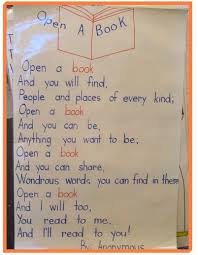 Open A Book
Open a book
And you will find,
People and places of every kind;
Open a book
And you can be,
Anything you want to be;
Open a book
And you can share,
Wondrous words you can find in there
Open a book
And I will too,
You read to me
And I'll read to you!
By Anonymous